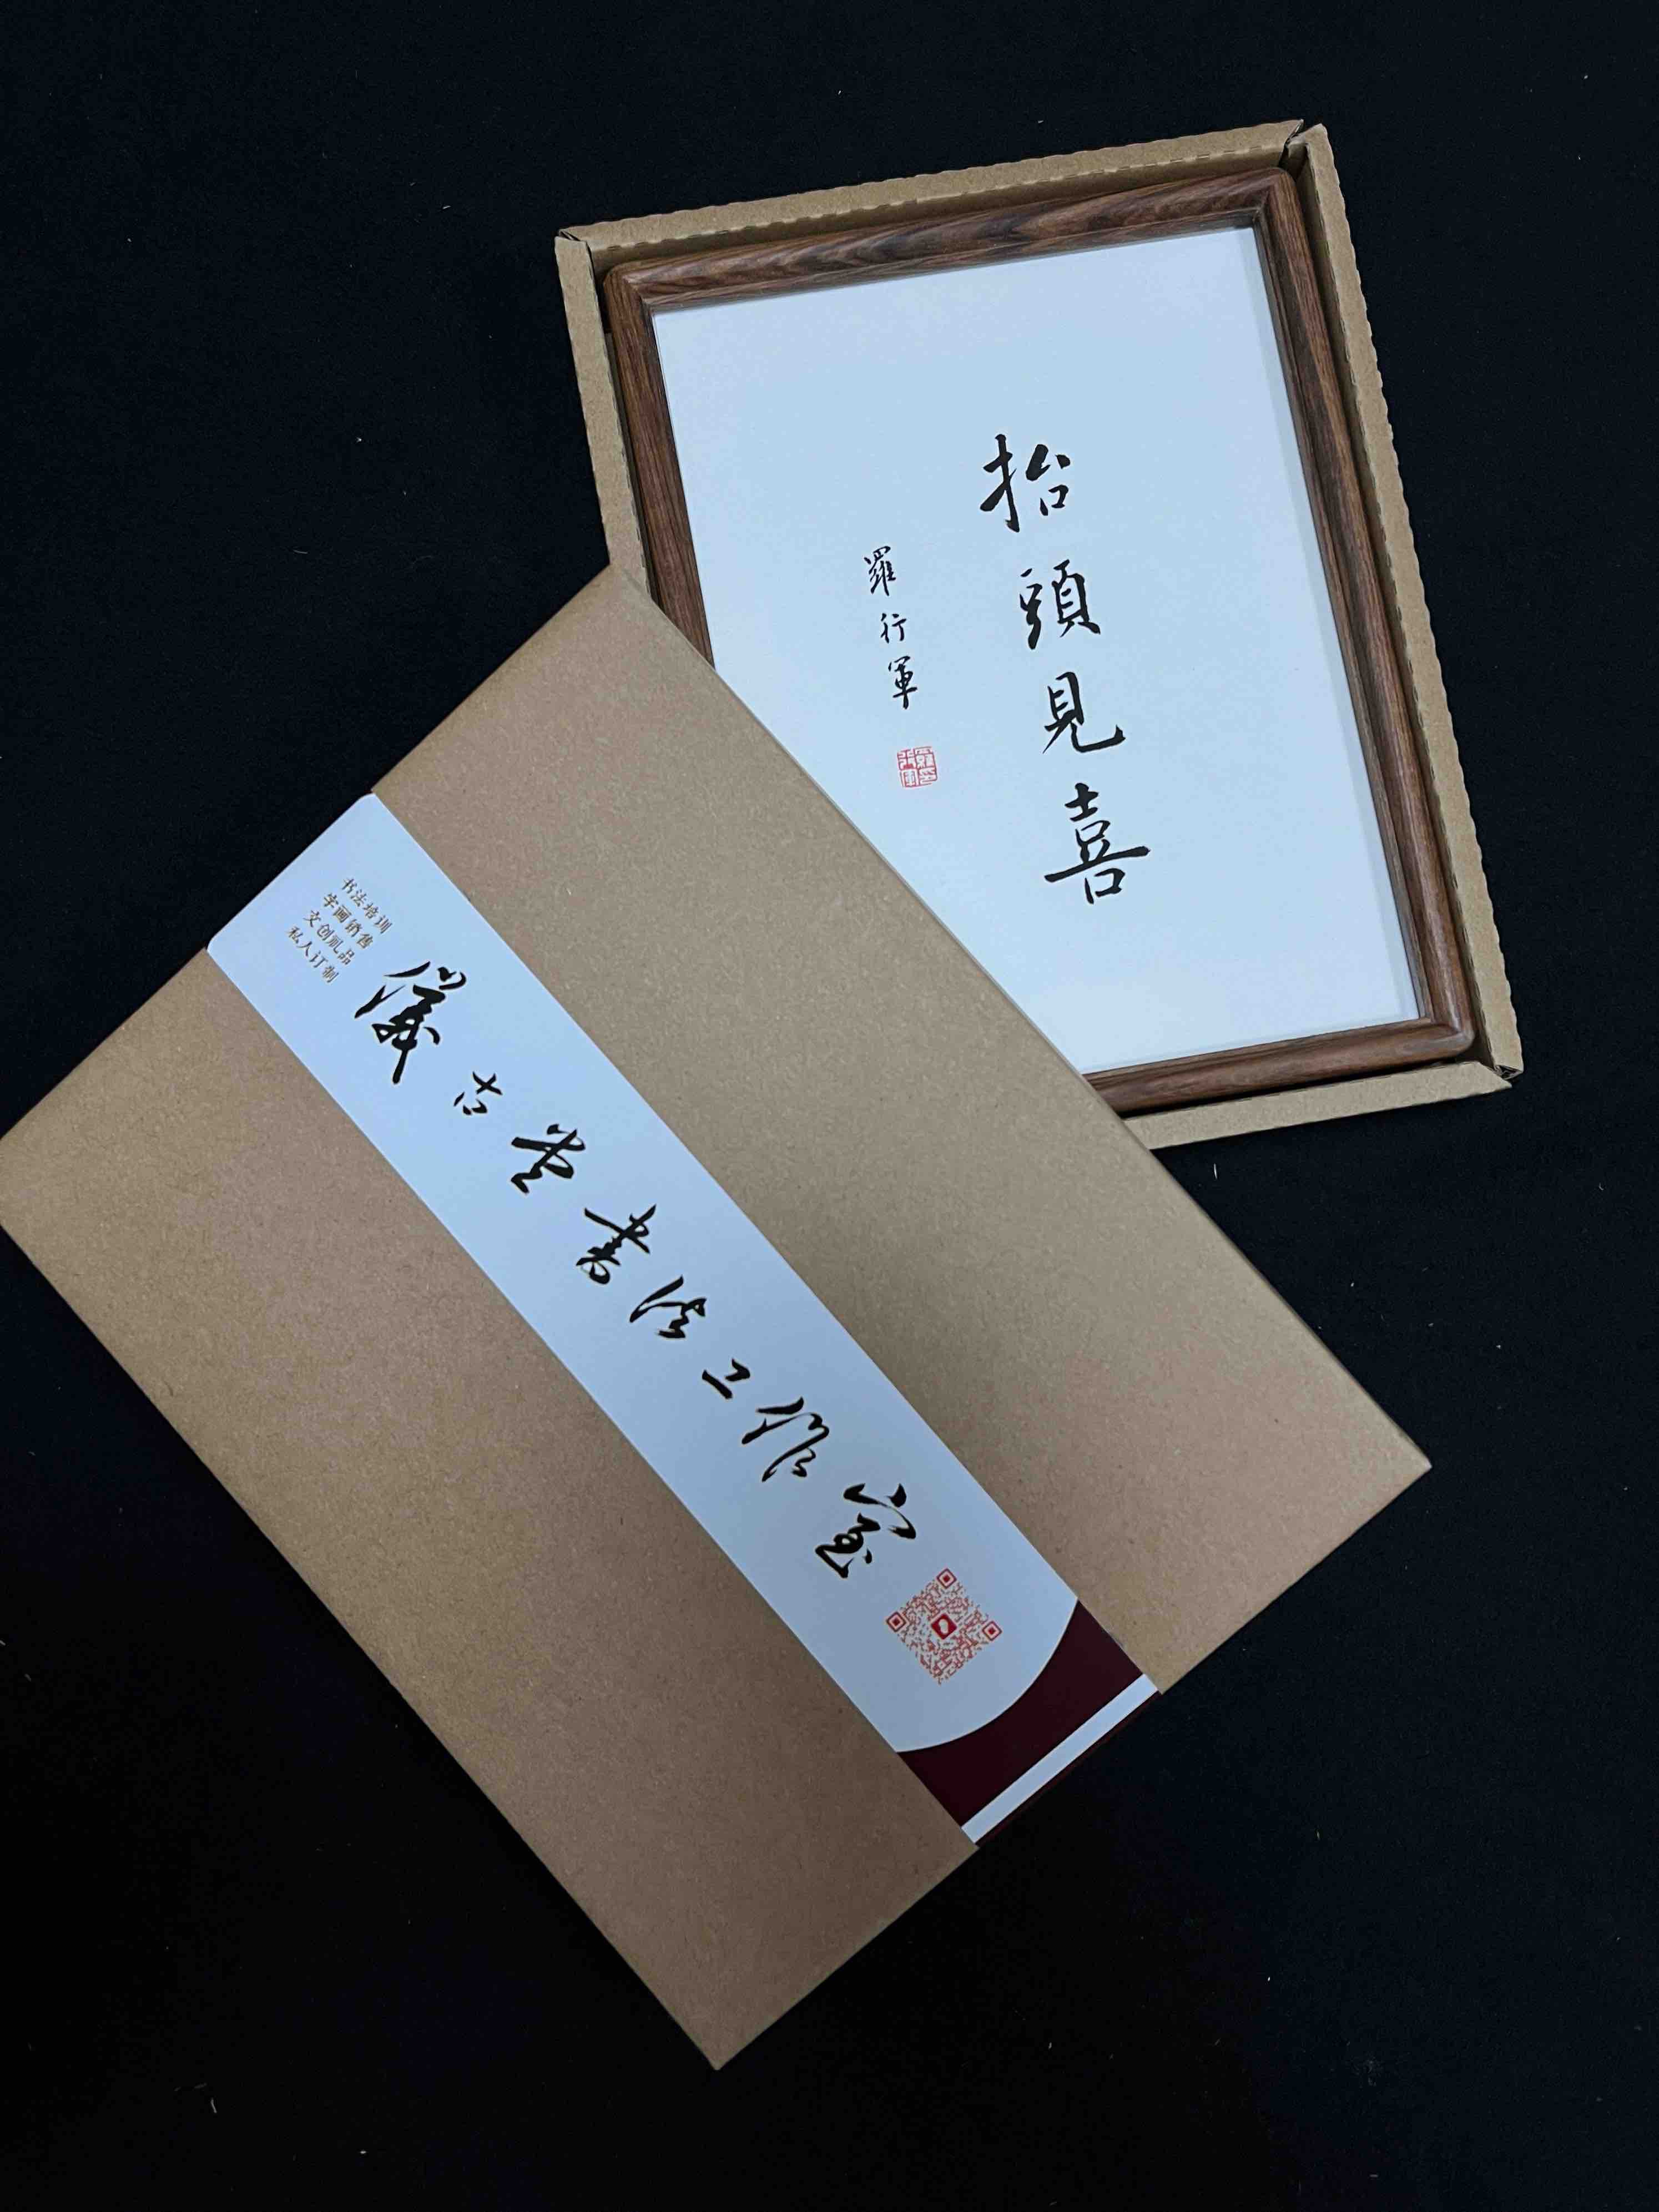 抬頭見喜
羅行軍
书法培训
字画销售
文创礼品
私人订制
儀古堂書法工作室